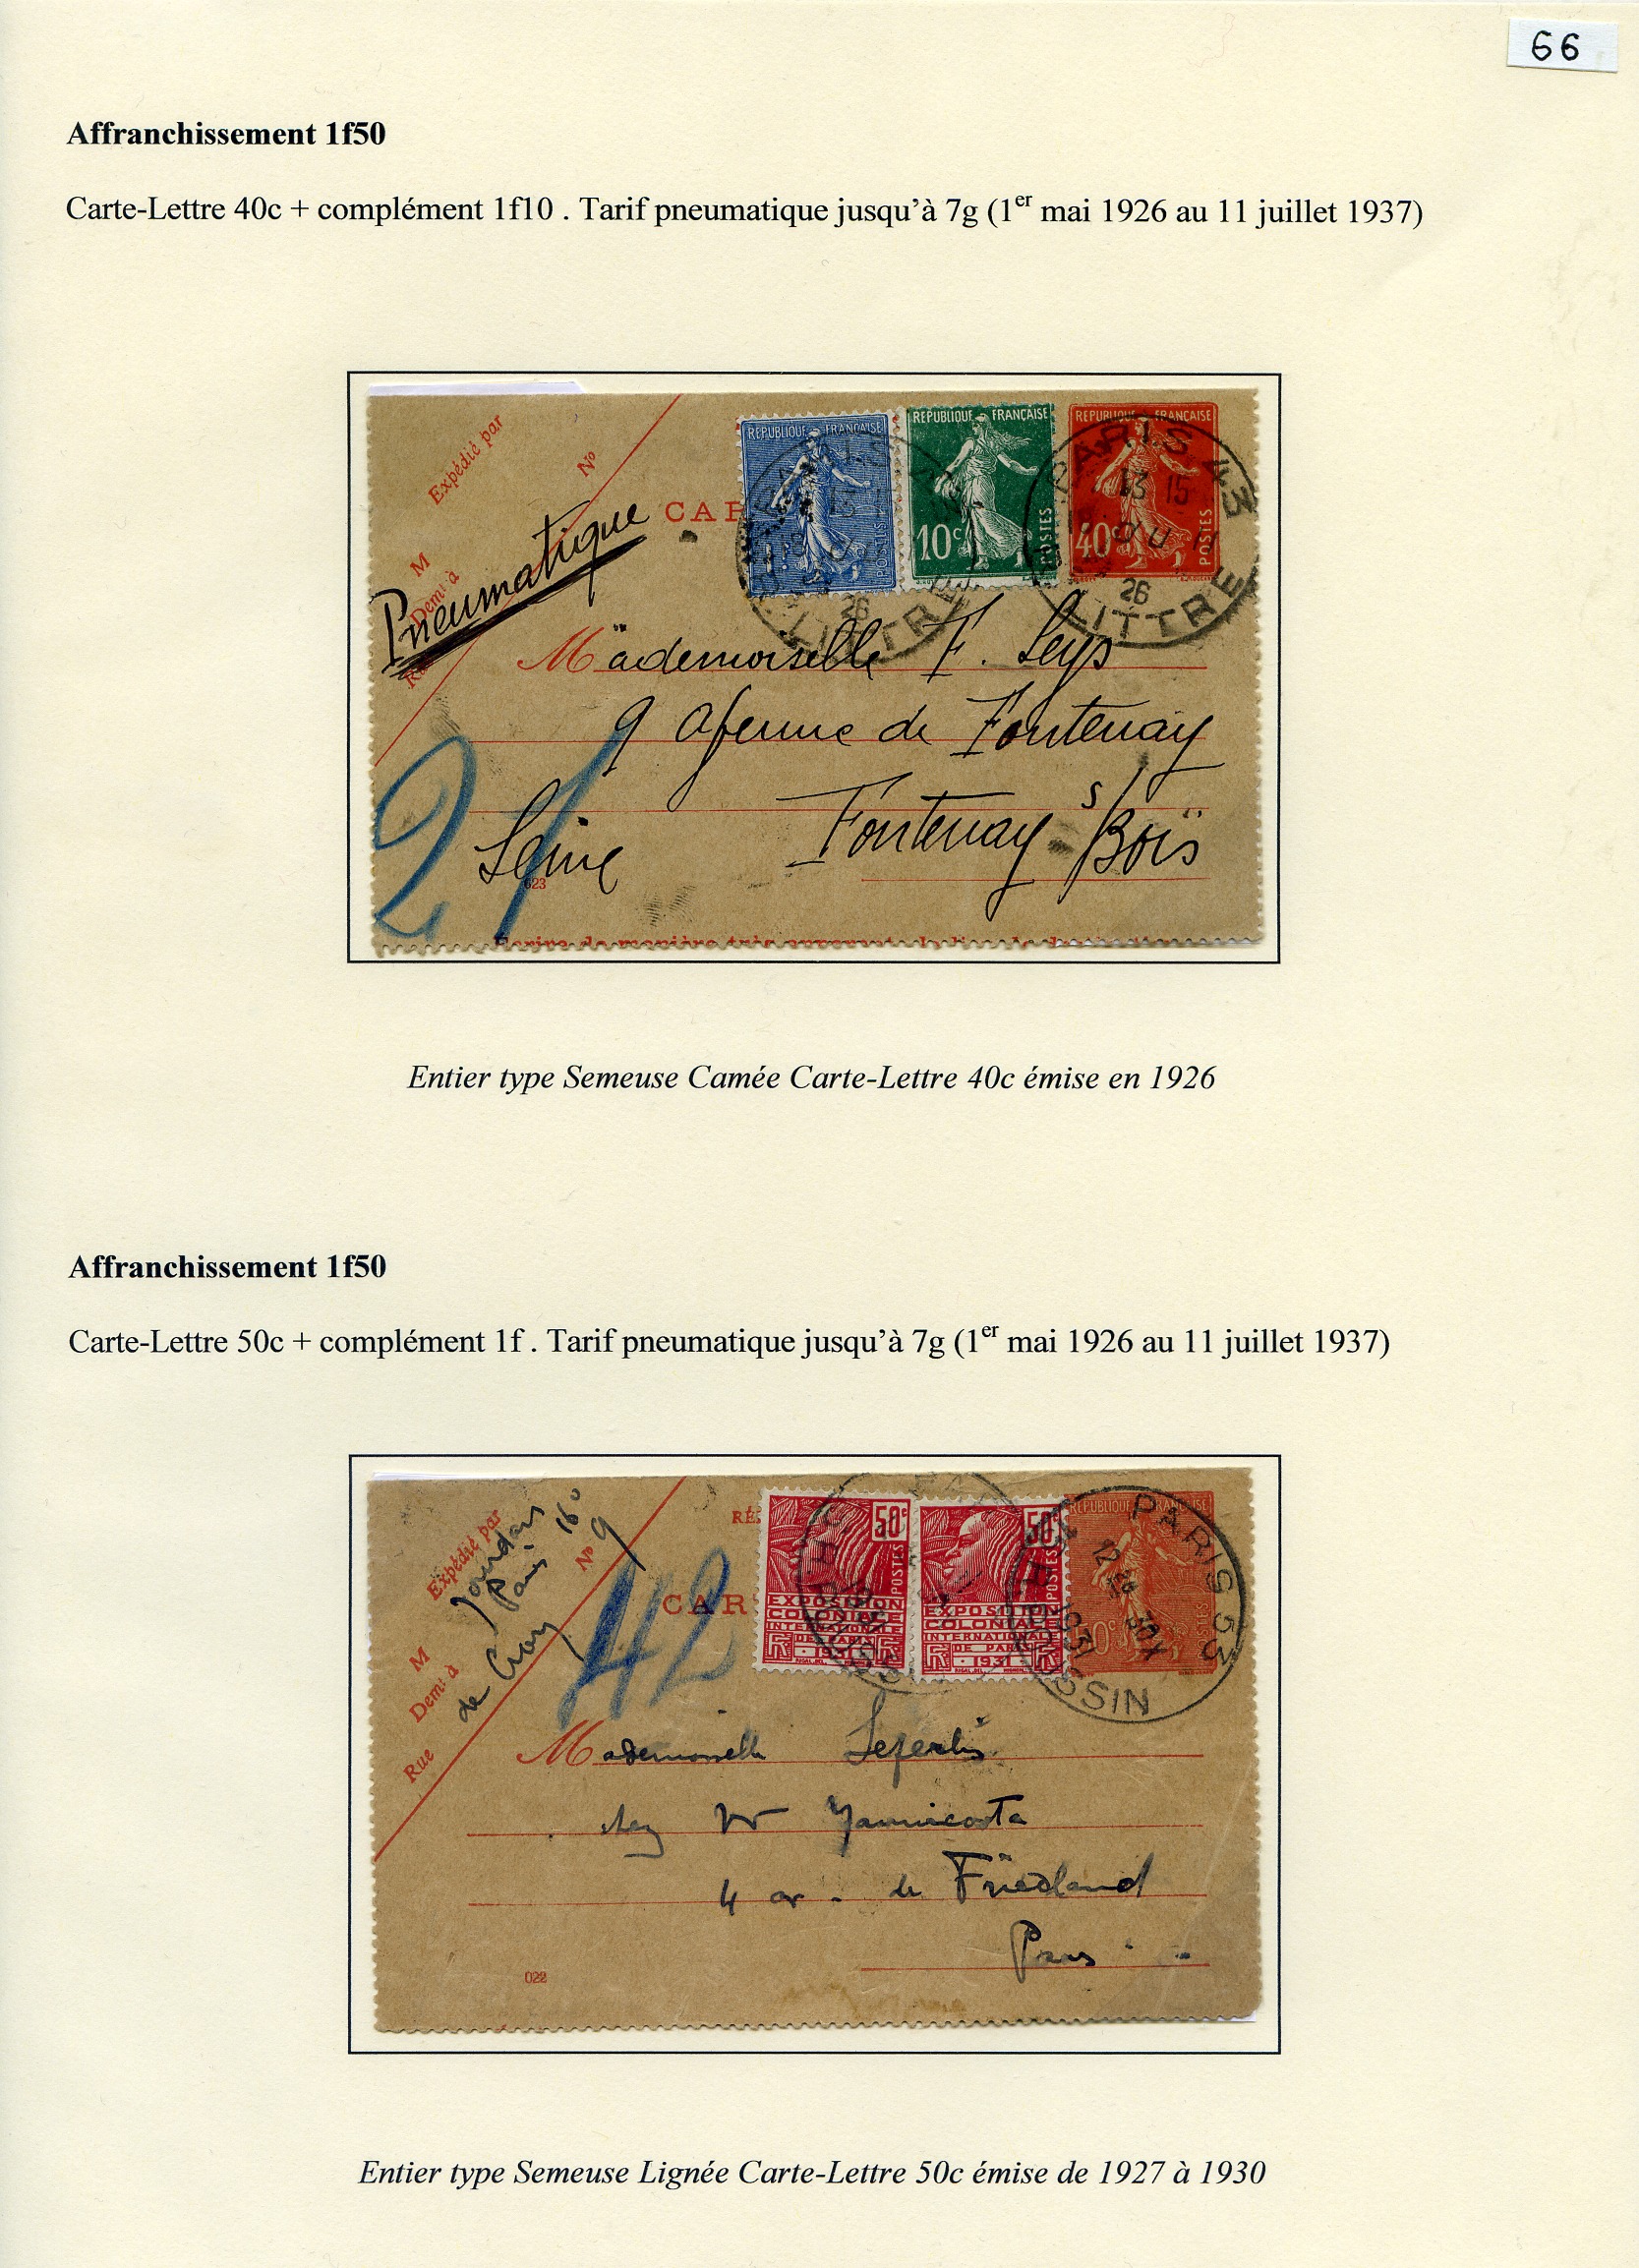 66
Affranchissement 1f50
Carte-Lettre 40c + complément 1f10 . Tarif pneumatique jusqu'à 7g (1er mai 1926 au 11 juillet 1937)
Expédié par
Nº
M
Demi à
Pneumatique
CAR
REPUBLIQUE FRANÇAISE
POSTES
REPUBLIQUE FRANÇAISE
10c
POSTES
REPUBLIQUE FRANÇAISE
40c
POSTES
PARIS 43
13 15
26
LITTRE
Mademoiselle F. Leys
9 Avenue de Fontenay
Fontenay s/Bois
Seine
21
623
Affranchissement 1f50
Entier type Semeuse Camée Carte-Lettre 40c émise en 1926
Carte-Lettre 50c + complément 1f . Tarif pneumatique jusqu'à 7g (1er mai 1926 au 11 juillet 1937)
Expédié par
Paris 16e
Nº 9
M
Demi à
Rue
RÉ
CAR
42
50c
POSTES
EXPOSITION
COLONIALE
INTERNATIONALE
DE PARIS
1931
50c
POSTES
EXPOSITION
COLONIALE
INTERNATIONALE
DE PARIS
1931
REPUBLIQUE FRANÇAISE
POSTES
PARIS 53
12 30
1931
Mademoiselle
chez Mr
4 av. de Friedland
Paris
022
Entier type Semeuse Lignée Carte-Lettre 50c émise de 1927 à 1930